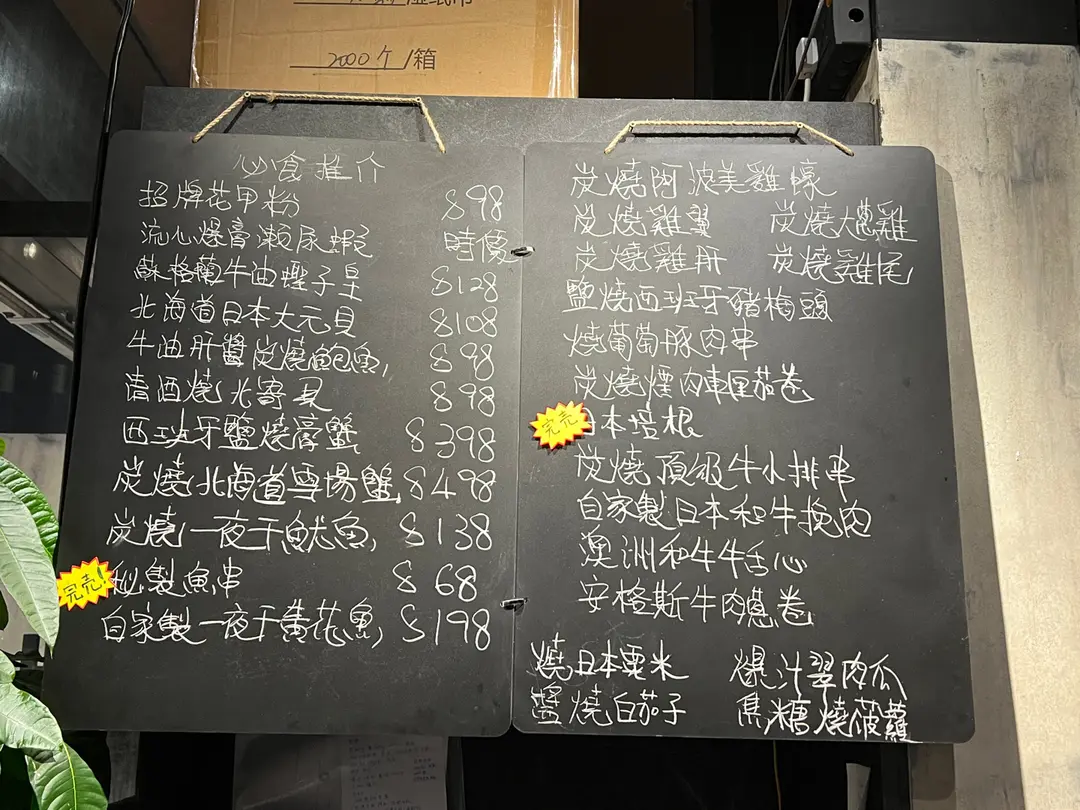 2000个/箱
必食推介
招牌花甲粉 $98
流心爆膏瀨尿蝦 時價
蘇格蘭牛油蟶子皇 $128
北海道日本大元貝 $108
牛油肝醬炭燒鮑魚 $98
清酒燒北寄貝 $98
西班牙鹽燒膏蟹 $398
炭燒北海道雪場蟹 $498
炭燒一夜干魷魚 $138
完売!
秘製魚串 $68
自家製一夜干黃花魚 $198
炭燒阿波美雞
炭燒雞翼 炭燒大蔥雞
炭燒雞肝 炭燒雞尾
鹽燒西班牙豬梅頭
燒葡萄豚肉串
炭燒煙肉車厘茄卷
完売
日本培根
炭燒頂級牛小排串
自家製日本和牛挽肉
澳洲和牛牛舌心
安格斯牛肉蔥卷
燒日本粟米 爆汁翠肉瓜
醬燒白茄子 焦糖燒菠蘿